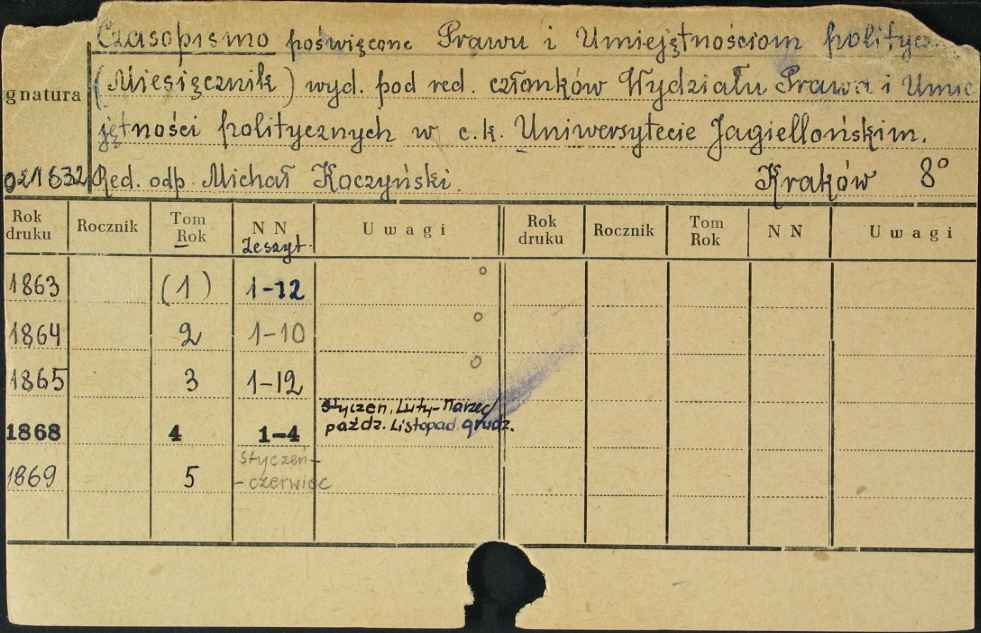 Czasopismo poświęcone Prawu i Umiejętnościom polityc
(Miesięcznik) wyd. pod red. członków Wydziału Prawa i Umie
gnatura
jętności politycznych w c.k. Uniwersytecie Jagiellońskim.
Red. odp Michał Koczyński. Kraków 8°
Rok druku Rocznik Tom Rok N N Zeszyt. Uwagi Rok druku Rocznik Tom Rok N N Uwagi
1863 (1) 1-12
1864 2 1-10
1865 3 1-12
Styczen, Luty-Marzec
1868 4 1-4 paźdz. Listopad. grudz.
1869 5 Styczeń-
-czerwiec